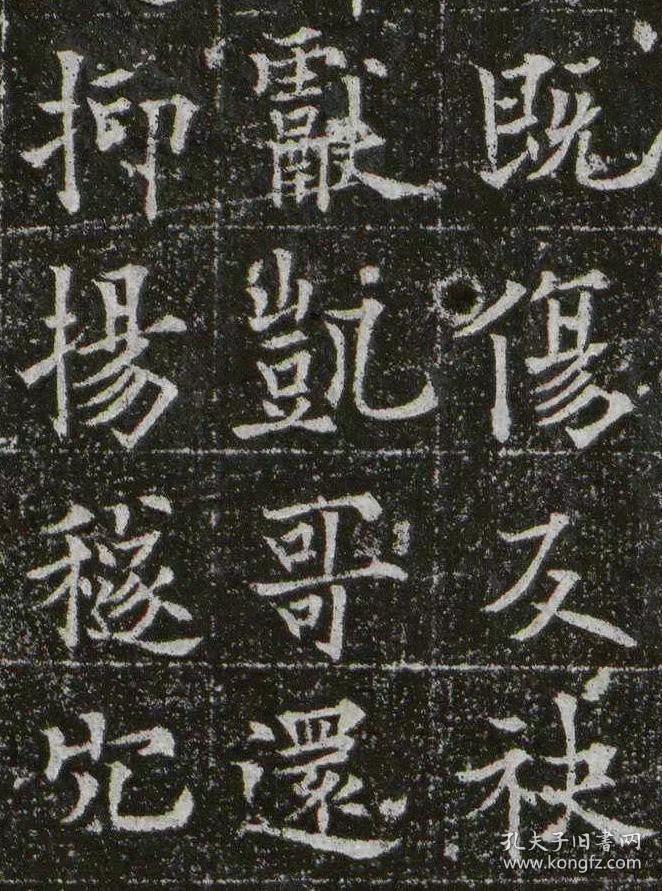 既傷反袂
獻凱哥還
抑揚穟
孔夫子旧書网
www.kongfz.com